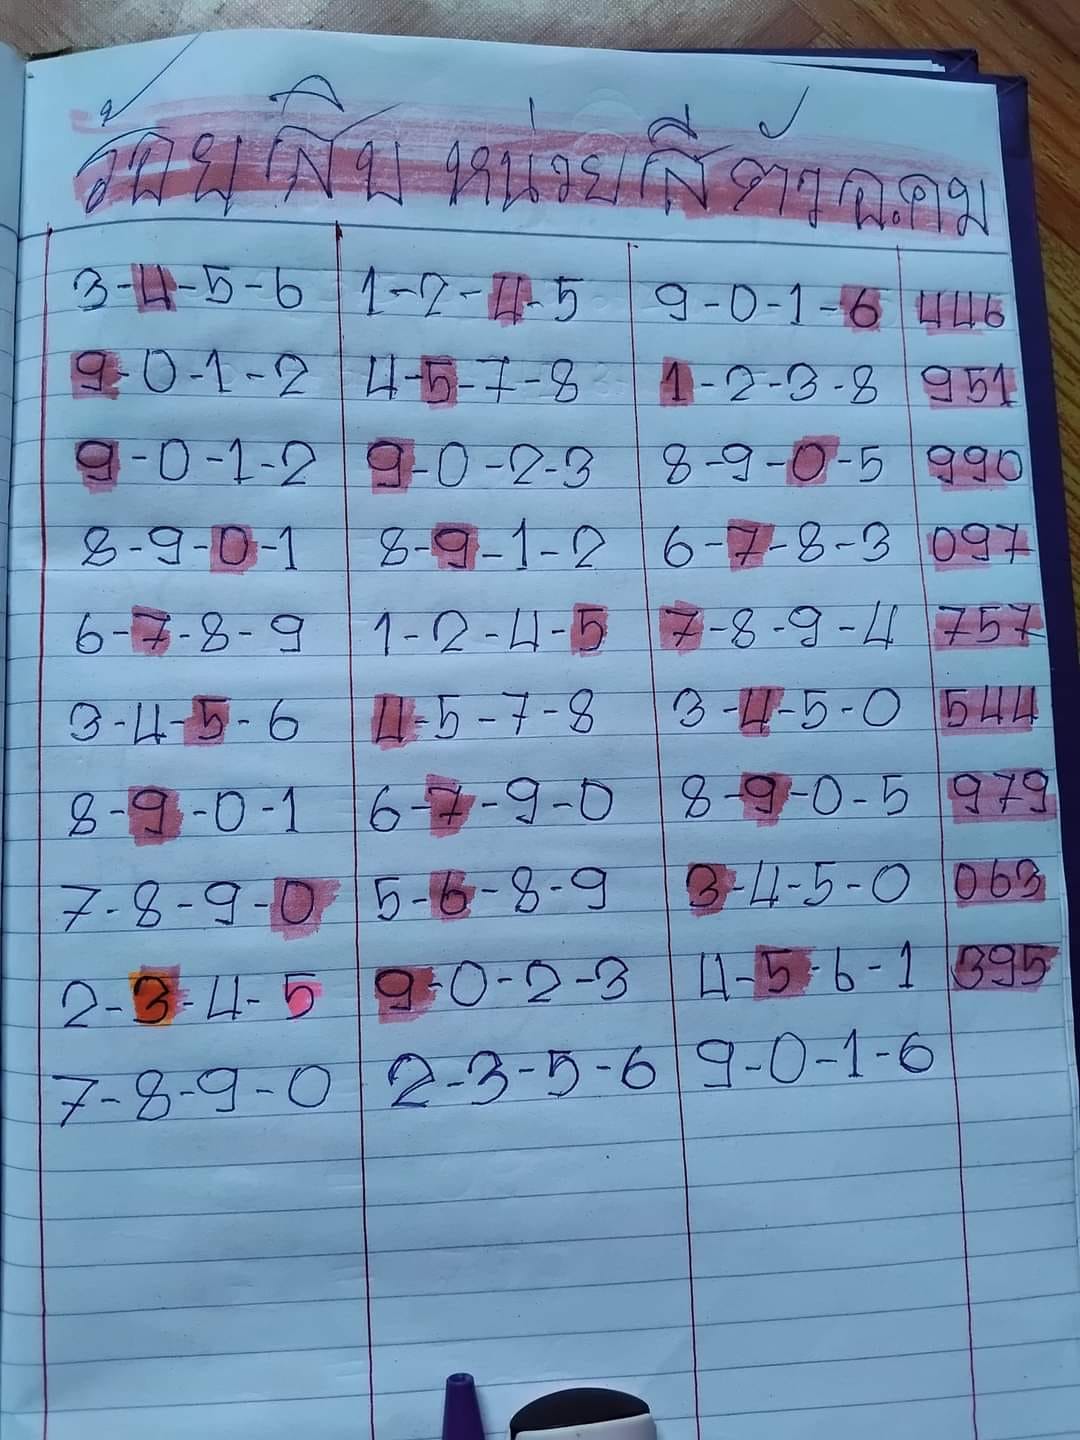 ร้อยสิบหน่วยสี่ตัวอ.คม
3-4-5-6 1-2-4-5 9-0-1-6 446
9-0-1-2 4-5-7-8 1-2-3-8 951
9-0-1-2 9-0-2-3 8-9-0-5 990
8-9-0-1 8-9-1-2 6-7-8-3 097
6-7-8-9 1-2-4-5 7-8-9-4 757
3-4-5-6 4-5-7-8 3-4-5-0 544
8-9-0-1 6-7-9-0 8-9-0-5 979
7-8-9-0 5-6-8-9 3-4-5-0 063
2-3-4-5 9-0-2-3 4-5-6-1 395
7-8-9-0 2-3-5-6 9-0-1-6